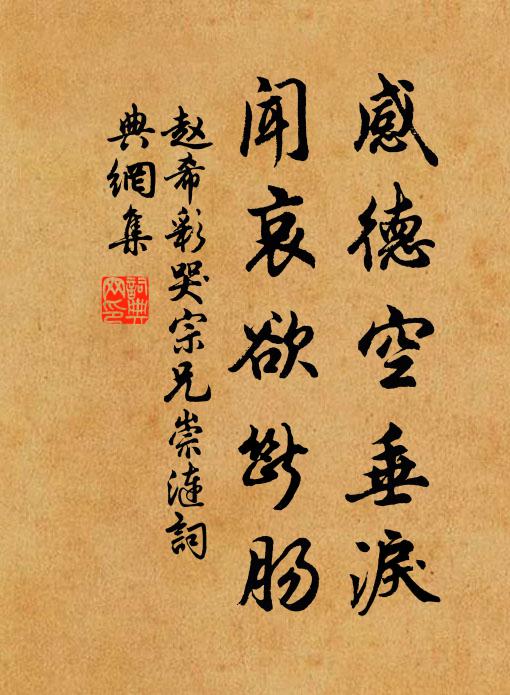 感德空垂淚
聞哀欲斷腸
赵希彩哭宗兄崇漣詞
典網集
詞典
网印